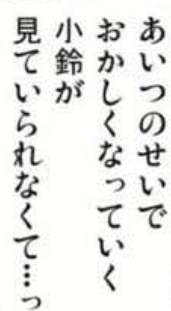 あいつのせいで
おかしくなっていく
小鈴が
見ていられなくて…っ